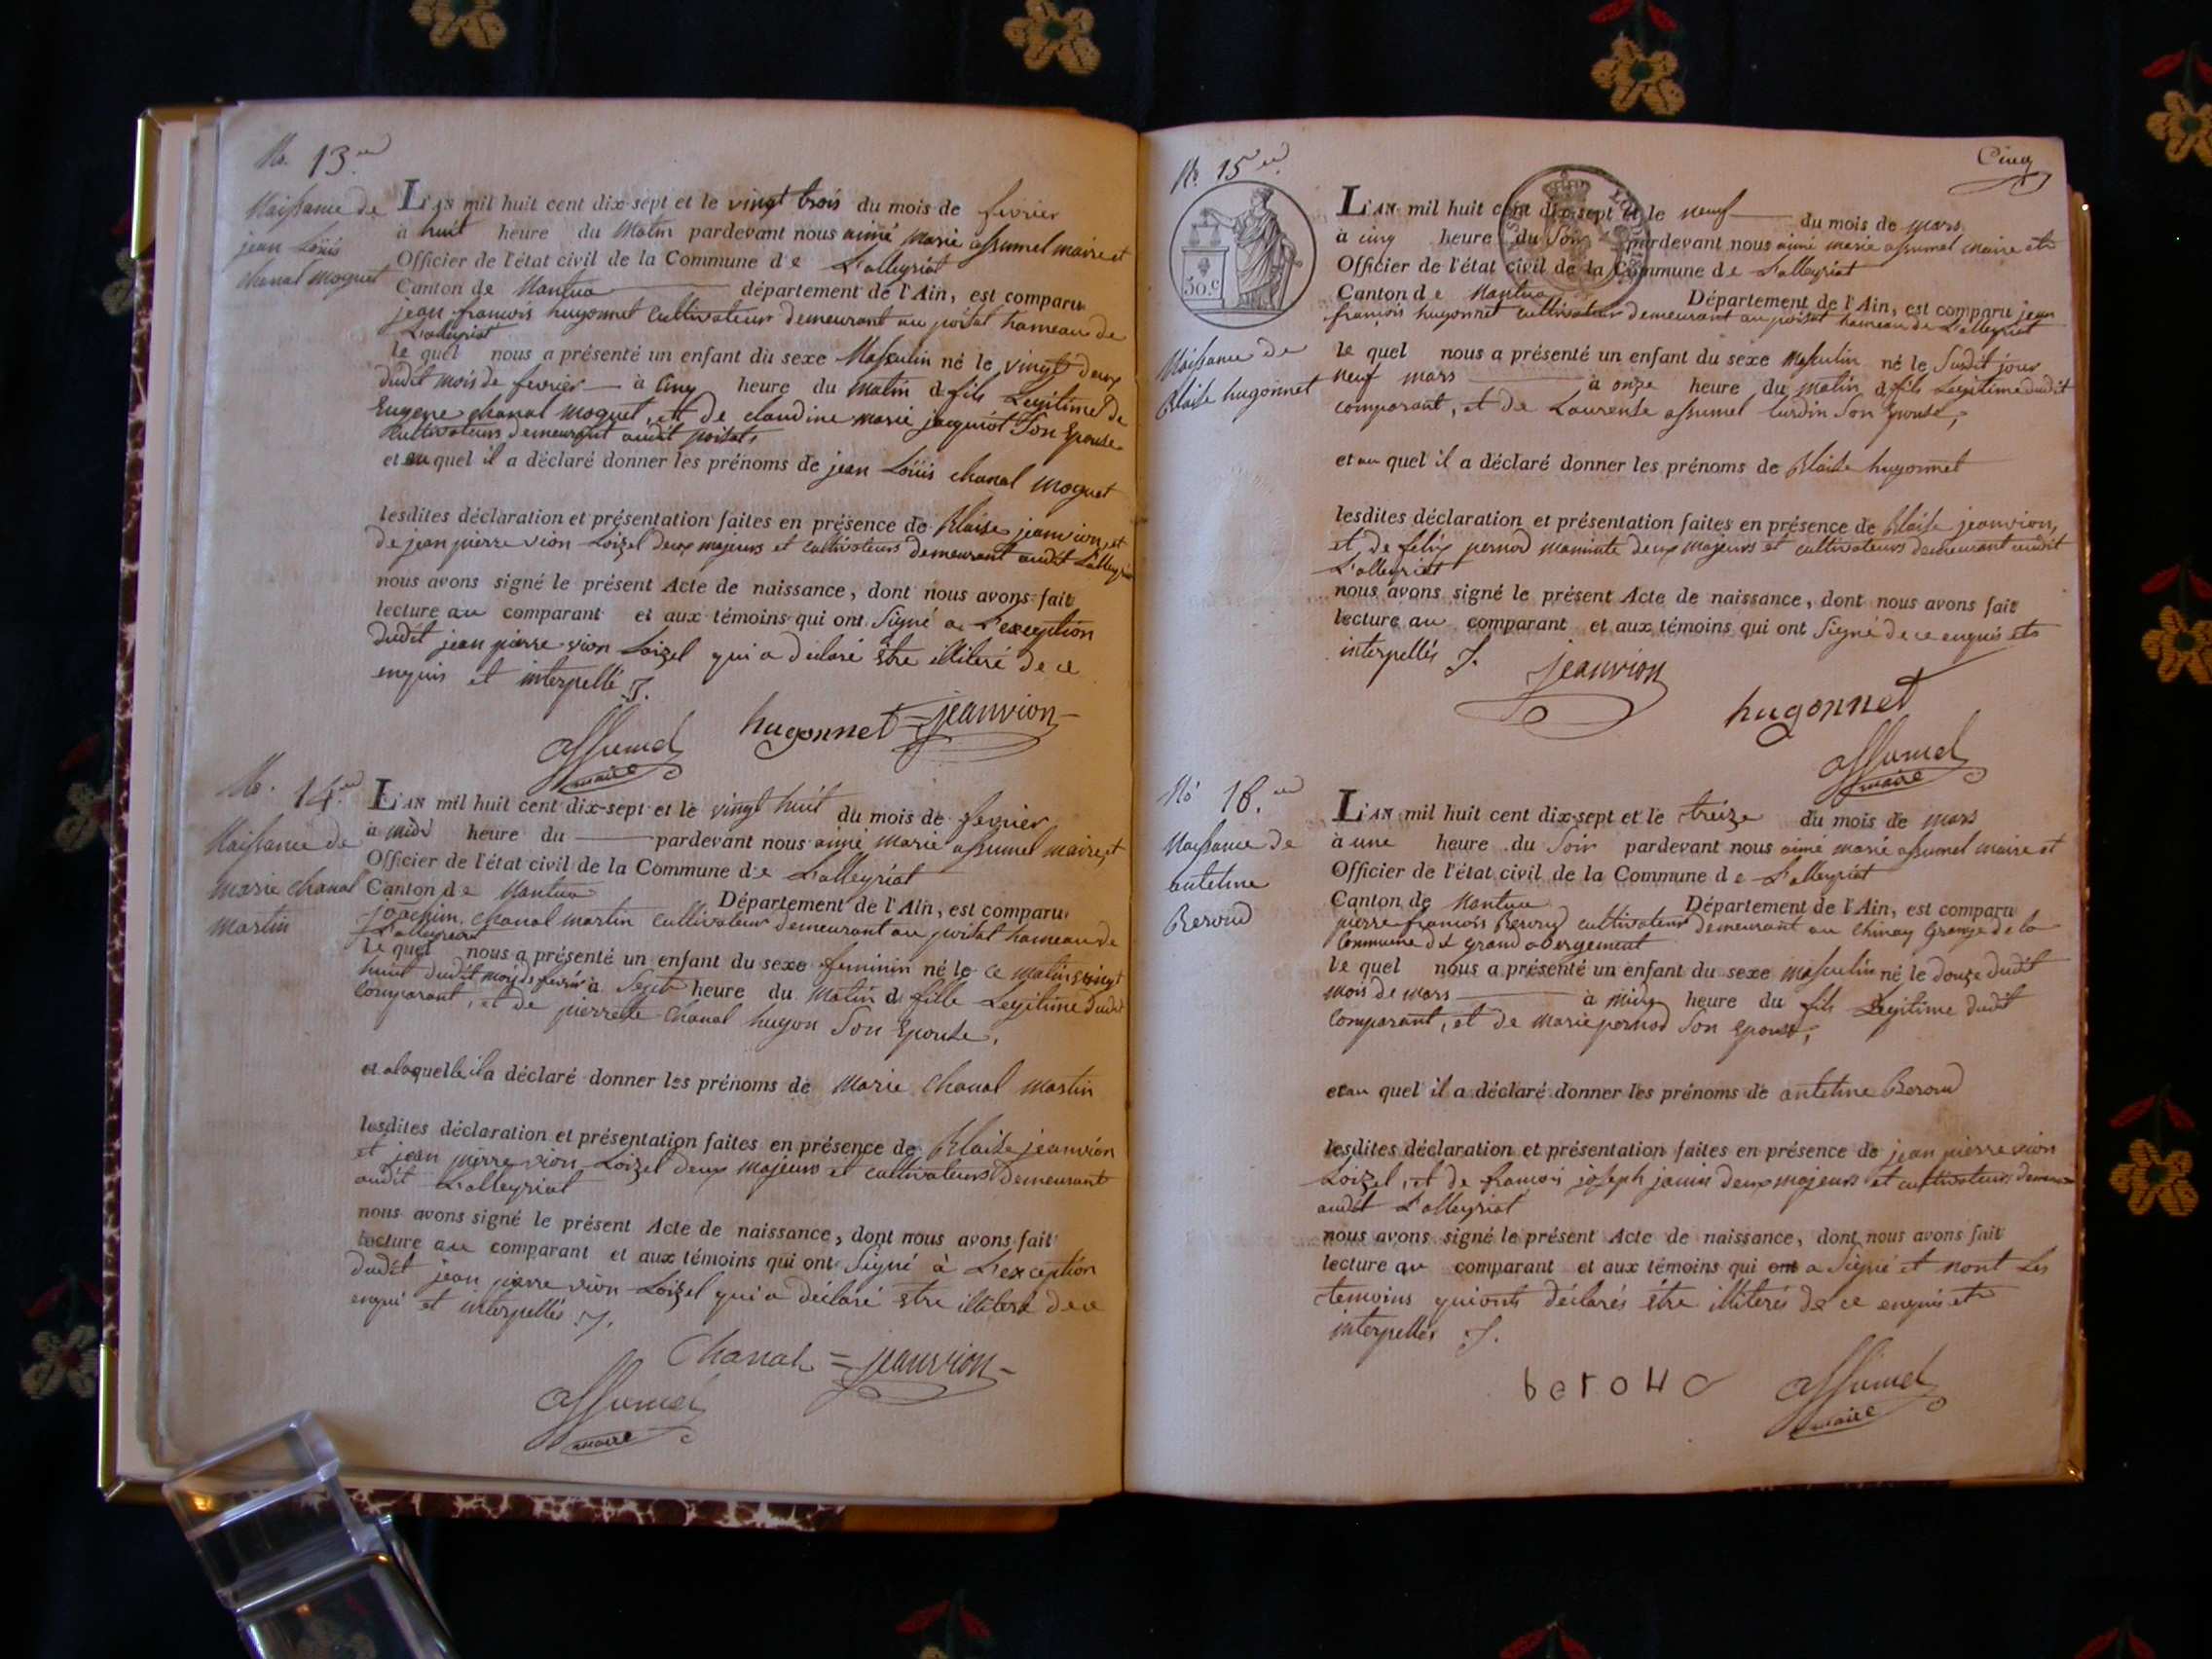 No. 13.
Naissance de
jean Loüis
chanal moguet
L'AN mil huit cent dix-sept et le vingt trois du mois de fevrier
à huit heure du Matin pardevant nous aimé marie assumel maire et
Officier de l'état civil de la Commune de L'alleyriat
Canton de Nantua département de l'Ain, est comparu
jean francois hugonnet cultivateur demeurant au poisat hameau de
L'alleyriat
le quel nous a présenté un enfant du sexe Masculin né le vingt deux
dudit mois de fevrier à cinq heure du matin d fils Legitime de
Eugene chanal moguet, et de claudine marie jacquiot Son Epouse
Cultivateurs demeurant audit poisat,
et au quel il a déclaré donner les prénoms de jean Loüis chanal moguet
lesdites déclaration et présentation faites en présence de Blaise jeanvion, et
de jean pierre vion Loizel deux majeurs et cultivateurs demeurant audit L'alleyriat
nous avons signé le présent Acte de naissance, dont nous avons fait
lecture au comparant et aux témoins qui ont Signé a L'exception
dudit jean pierre vion Loizel qui a déclaré être illiteré de ce
enquis et interpellé ./.
hugonnet = jeanvion
assumel
maire
No. 14.
Naissance de
marie chanal
martin
L'AN mil huit cent dix-sept et le vingt huit du mois de fevrier
à midi heure du pardevant nous aimé marie assumel maire, et
Officier de l'état civil de la Commune de L'alleyriat
Canton de Nantua Département de l'Ain, est comparu
joachim chanal martin cultivateur demeurant au poisat hameau de
L'alleyriat
le quel nous a présenté un enfant du sexe feminin né le ce matin vingt
huit dudit mois de fevrier à Sept heure du matin d fille Legitime dudit
comparant, et de pierrette chanal hugon Son Epouse,
et a laquelle il a déclaré donner les prénoms de Marie Chanal martin
lesdites déclaration et présentation faites en présence de Blaise jeanvion
et jean pierre vion Loizel deux majeurs et cultivateurs demeurant
audit L'alleyriat
nous avons signé le présent Acte de naissance, dont nous avons fait
lecture au comparant et aux témoins qui ont Signé à L'exception
dudit jean pierre vion Loizel qui a déclaré être illiteré de ce
enqui et interpellés ./.
Chanal = jeanvion
assumel
maire
Cinq
No. 15
50.c
Naissance de
Blaise hugonnet
L'AN mil huit cent dix-sept et le neuf du mois de mars
à cinq heure du Soir pardevant nous aimé marie assumel maire et
Officier de l'état civil de la Commune de L'alleyriat
Canton de Nantua Département de l'Ain, est comparu jean
françois hugonnet cultivateur demeurant au poisat hameau de L'alleyriat
le quel nous a présenté un enfant du sexe masculin né le Susdit jour
neuf mars à onze heure du matin d fils Legitime dudit
comparant, et de Laurense assumel lurdin Son Epouse,
et au quel il a déclaré donner les prénoms de Blaise hugonnet
lesdites déclaration et présentation faites en présence de Blaise jeanvion,
et de felix pernod maminte deux majeurs et cultivateurs demeurant audit
L'alleyriat
nous avons signé le présent Acte de naissance, dont nous avons fait
lecture au comparant et aux témoins qui ont Signé de ce enquis et
interpellés ./.
jeanvion
hugonnet
assumel
maire
No. 16.
Naissance de
antelme
Beroud
L'AN mil huit cent dix-sept et le treize du mois de mars
à une heure du Soir pardevant nous aimé marie assumel maire et
Officier de l'état civil de la Commune de L'alleyriat
Canton de Nantua Département de l'Ain, est comparu
pierre francois Beroud cultivateur demeurant au chinay Grange de la
Commune de grand abergement
le quel nous a présenté un enfant du sexe masculin né le douze dudit
mois de mars à midy heure du fils Legitime dudit
comparant, et de marie pernod Son Epouse,
et au quel il a déclaré donner les prénoms de antelme Beroud
lesdites déclaration et présentation faites en présence de jean pierre vion
Loizel, et de francois joseph janin deux majeurs et cultivateurs
audit L'alleyriat
nous avons signé le présent Acte de naissance, dont nous avons fait
lecture au comparant et aux témoins qui ont a Signé et nont Les
temoins qui ont déclarés être illiterés de ce enquis et
interpellés ./.
beroud
assumel
maire